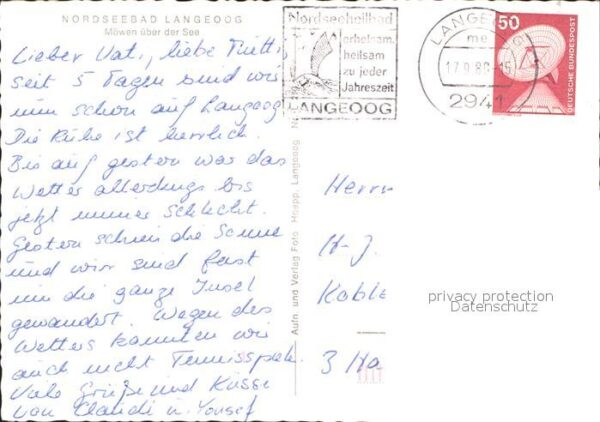 NORDSEEBAD LANGEOOG
Möwen über der See
Lieber Vati, liebe Mutti,
seit 5 Tagen sind wir
nun schon auf Langeoog
Die Ruhe ist herrlich.
Bis auf gestern war das
Wetter allerdings bis
jetzt immer schlecht.
Gestern schien die Sonne
und wir sind fast
um die ganze Insel
gewandert. Wegen des
Wetters konnten wir
auch nicht Tennisspielen.
Viele Grüße und Küsse
von Claudi u. Yousef
Aufn. und Verlag Foto Langeoog
Nordseeheilbad
erholsam,
heilsam
zu jeder
Jahreszeit
LANGEOOG
LANGEOOG
me
17.9.80-15
2941
50
DEUTSCHE BUNDESPOST
Herrn
H.-J.
3 Ha
privacy protection
Datenschutz